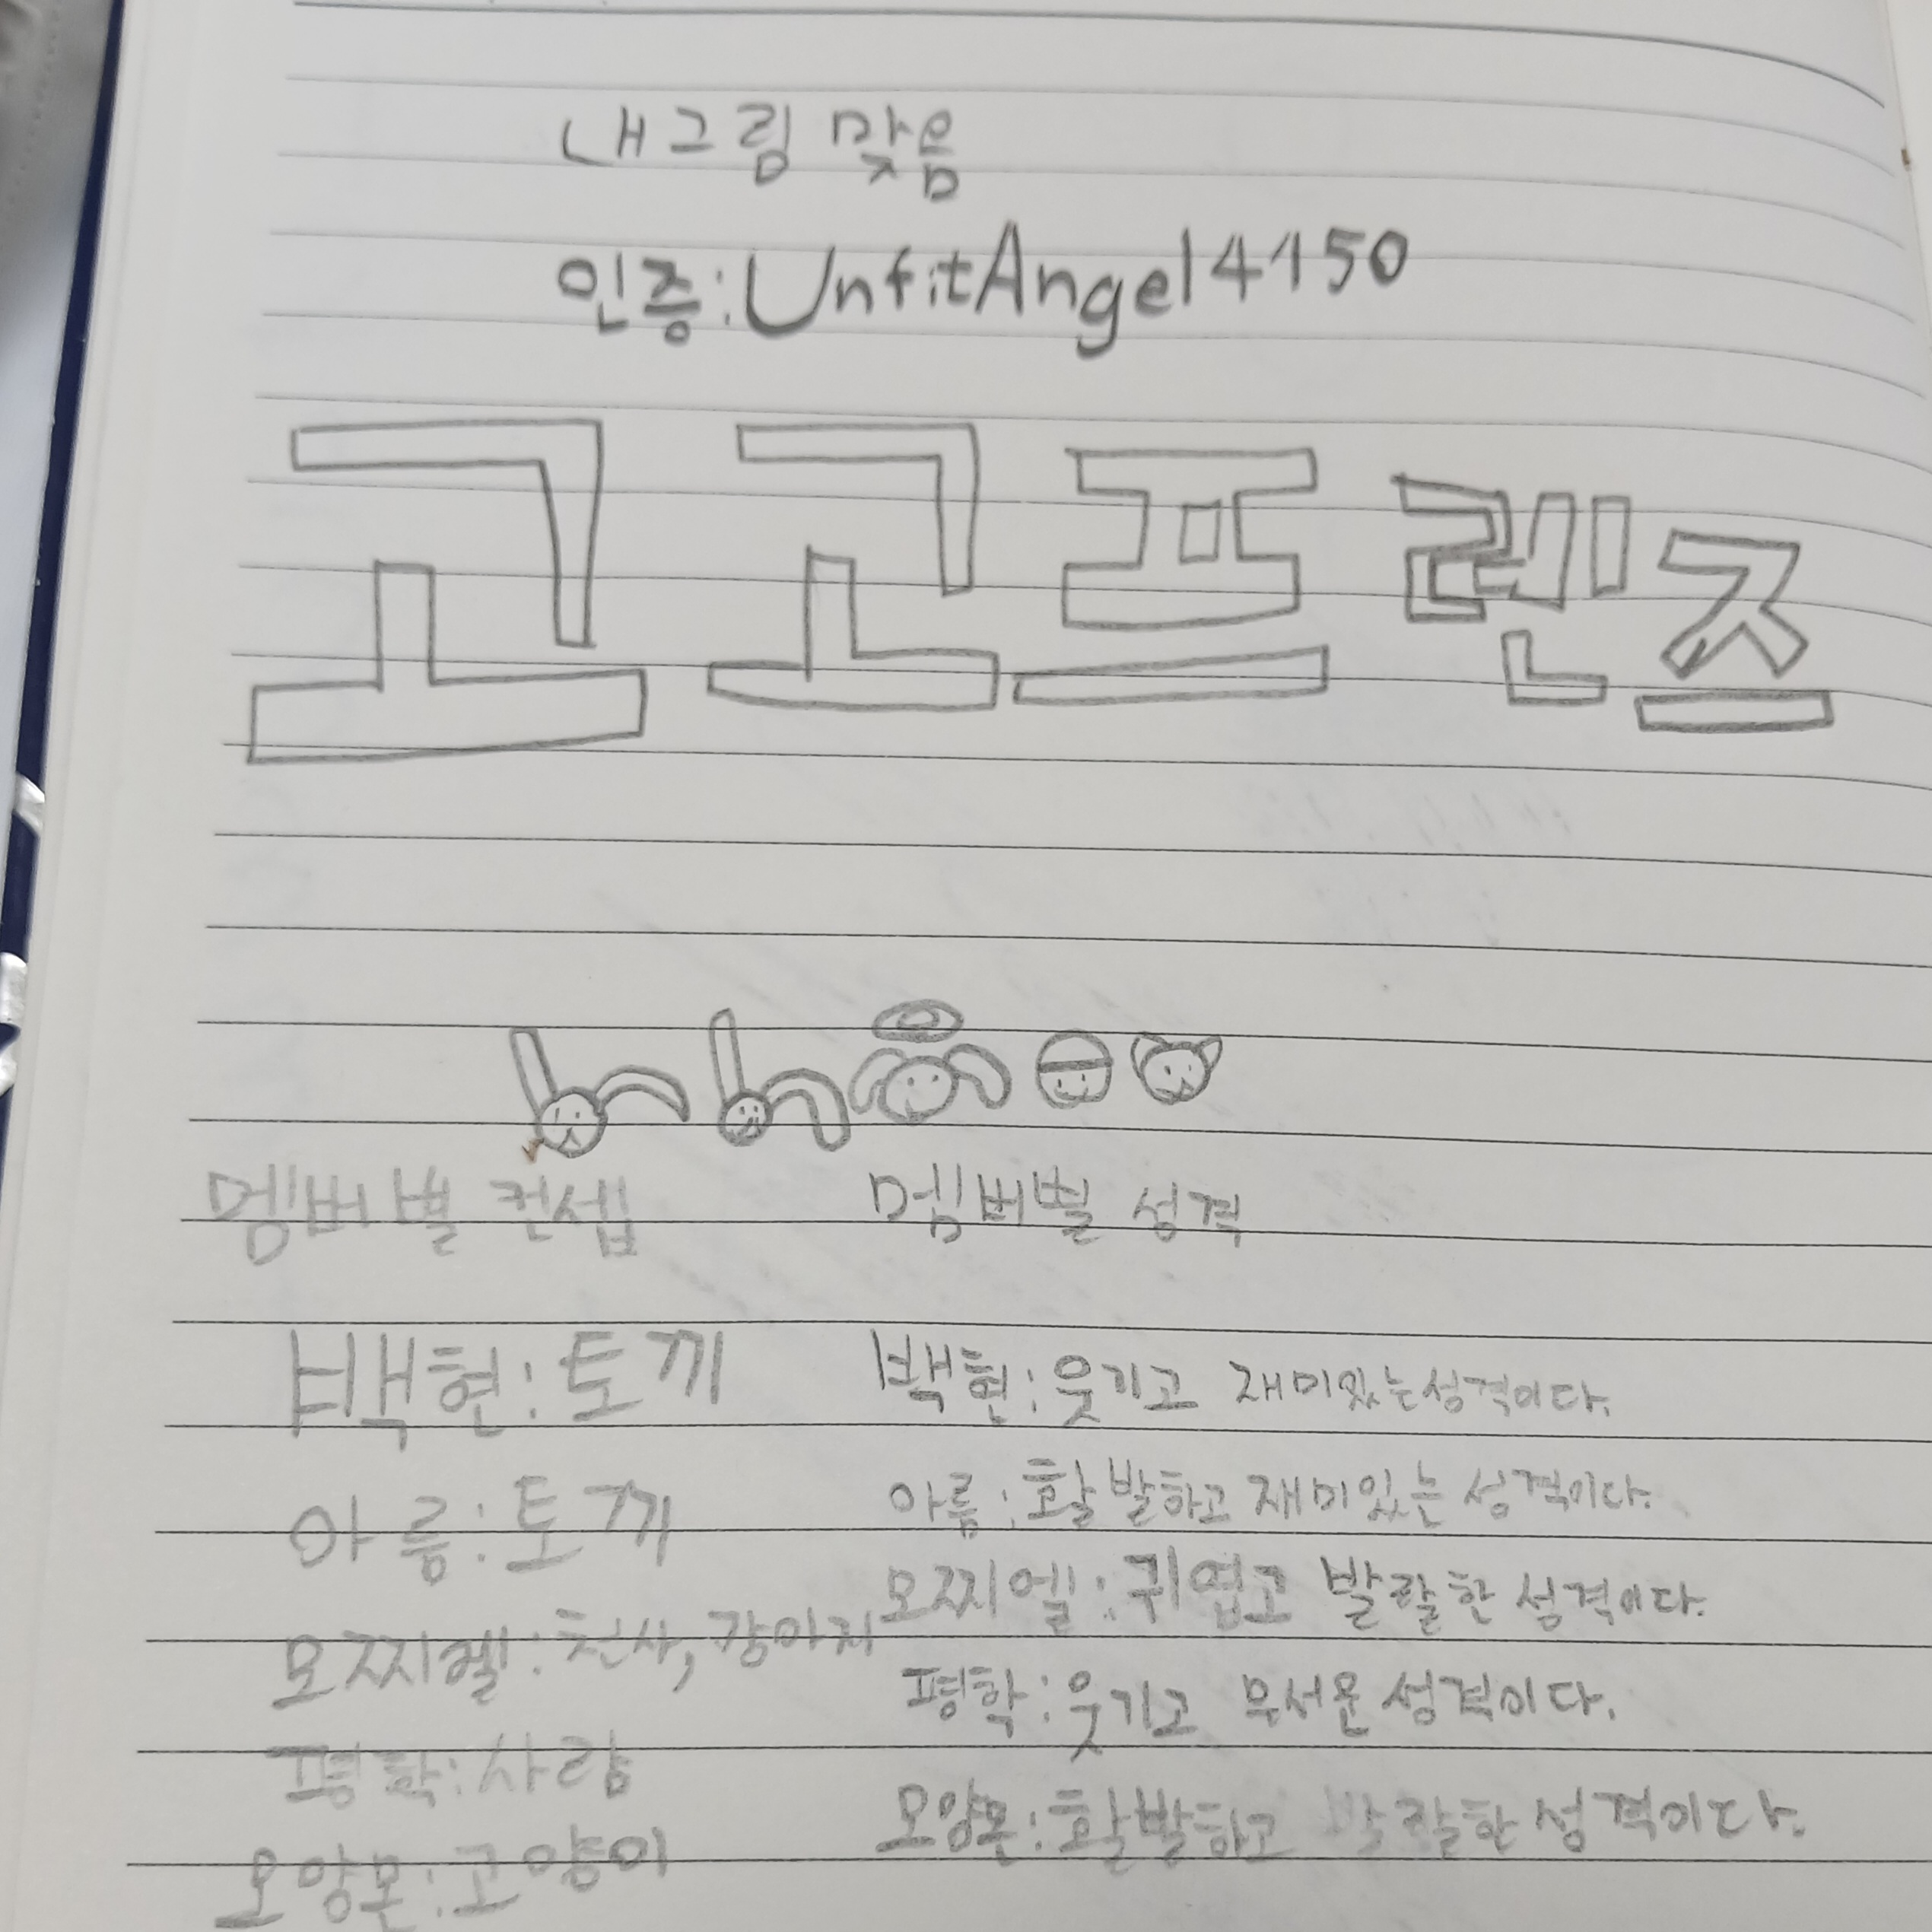 내그림 맞음
인증:UnfitAngel4150
고고프렌즈
멤버별 컨셉
멤버별 성격
백현:토끼
백현:웃기고 재미있는성격이다.
아름:토끼
아름:활발하고 재미있는 성격이다.
모찌엘:천사,강아지
모찌엘:귀엽고 발랄한 성격이다.
평학:사람
평학:웃기고 무서운 성격이다.
모양몬:고양이
모양몬:활발하고 발랄한 성격이다.